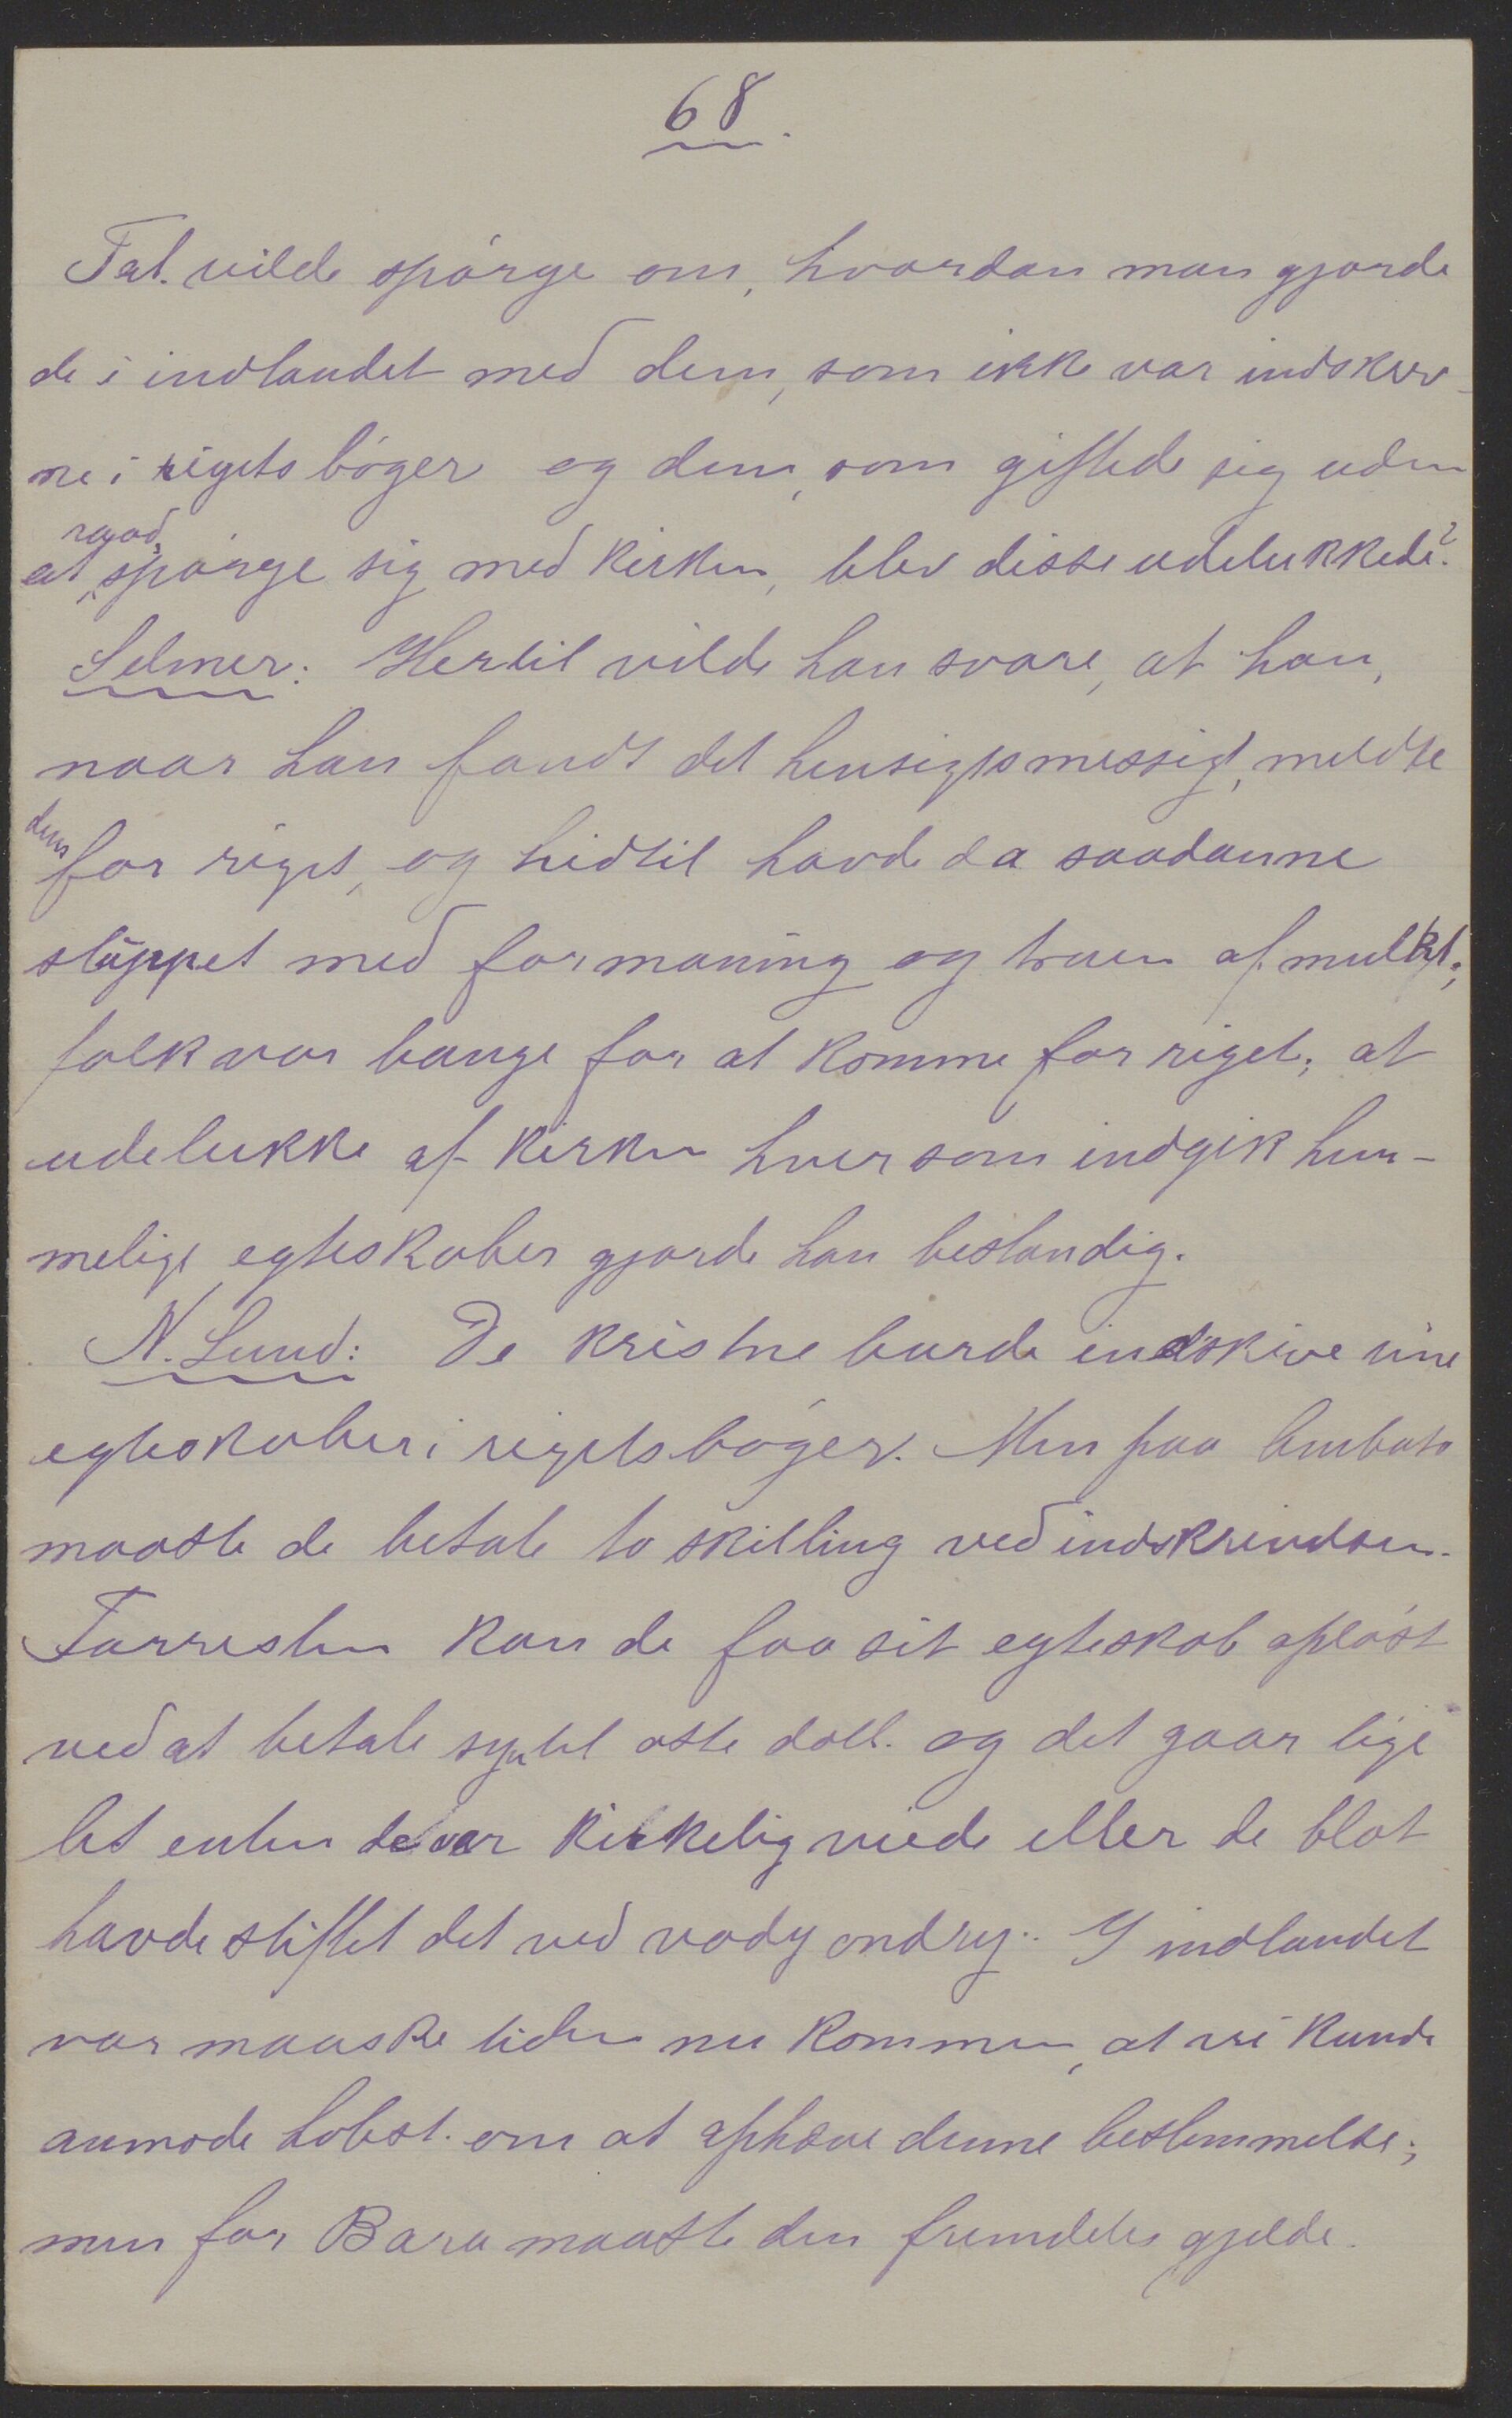 68.
Tal. vilde spørge om, hvordan man gjorde
de i indlandet med dem, som ikke var indskrev-
ne i rigets bøger og dem, som giftede sig uden
raad
at spørge sig med kirken, blev disse udelukkede?
Selmer: Hertil vilde han svare, at han,
naar han fandt det hensigtsmessigt, meldte
dem
for riget, og hidtil havde da saadanne
sluppet med formaning og truen af mulkt;
folk var bange for at komme for riget; at
udelukke af kirken hver som indgik hem-
melige egteskaber gjorde han bestandig.
N. Lund: De kristne burde indskrive sine
egteskaber i rigets bøger. Men paa
maatte de betale to skilling ved indskrivelsen.
Forresten kan de faa sit egteskab opløst
ved at betale syv til otte doll. og det gaar lige
let enten de var kirkelig viede eller de blot
havde stiftet det ved vody ondry. I indlandet
var maaske tiden nu kommen, at vi kunde
anmode tobest. om at ophæve denne bestemmelse;
men for Bara maatte den fremdeles gjelde.